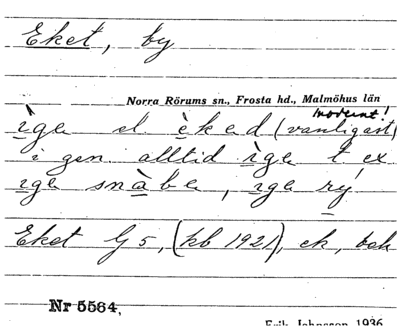 Eket, by
Norra Rörums sn., Frosta hd., Malmöhus län
modernt!
ìge el. èked (vanligast)
i gen alltid ìge t ex
ìge snàbe, ìge rý
Eket G 5, (kb 1921), ek, bok
Nr 5564,
Erik Johnsson 1936